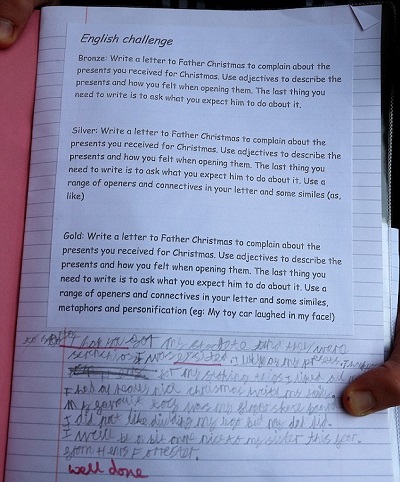 English challenge
Bronze: Write a letter to Father Christmas to complain about the
presents you received for Christmas. Use adjectives to describe the
presents and how you felt when opening them. The last thing you
need to write is to ask what you expect him to do about it.
Silver: Write a letter to Father Christmas to complain about the
presents you received for Christmas. Use adjectives to describe the
presents and how you felt when opening them. The last thing you
need to write is to ask what you expect him to do about it. Use a
range of openers and connectives in your letter and some similes (as,
like)
Gold: Write a letter to Father Christmas to complain about the
presents you received for Christmas. Use adjectives to describe the
presents and how you felt when opening them. The last thing you
need to write is to ask what you expect him to do about it. Use a
range of openers and connectives in your letter and some similes,
metaphors and personification (eg: My toy car laughed in my face!)
you got my and they were
I my
for my things I liked all
I had a really nice christmas with my
my was my
I did not like my but my dad did.
I will be a bit more nice to my sister this year.
from Henry Forrester.
well done